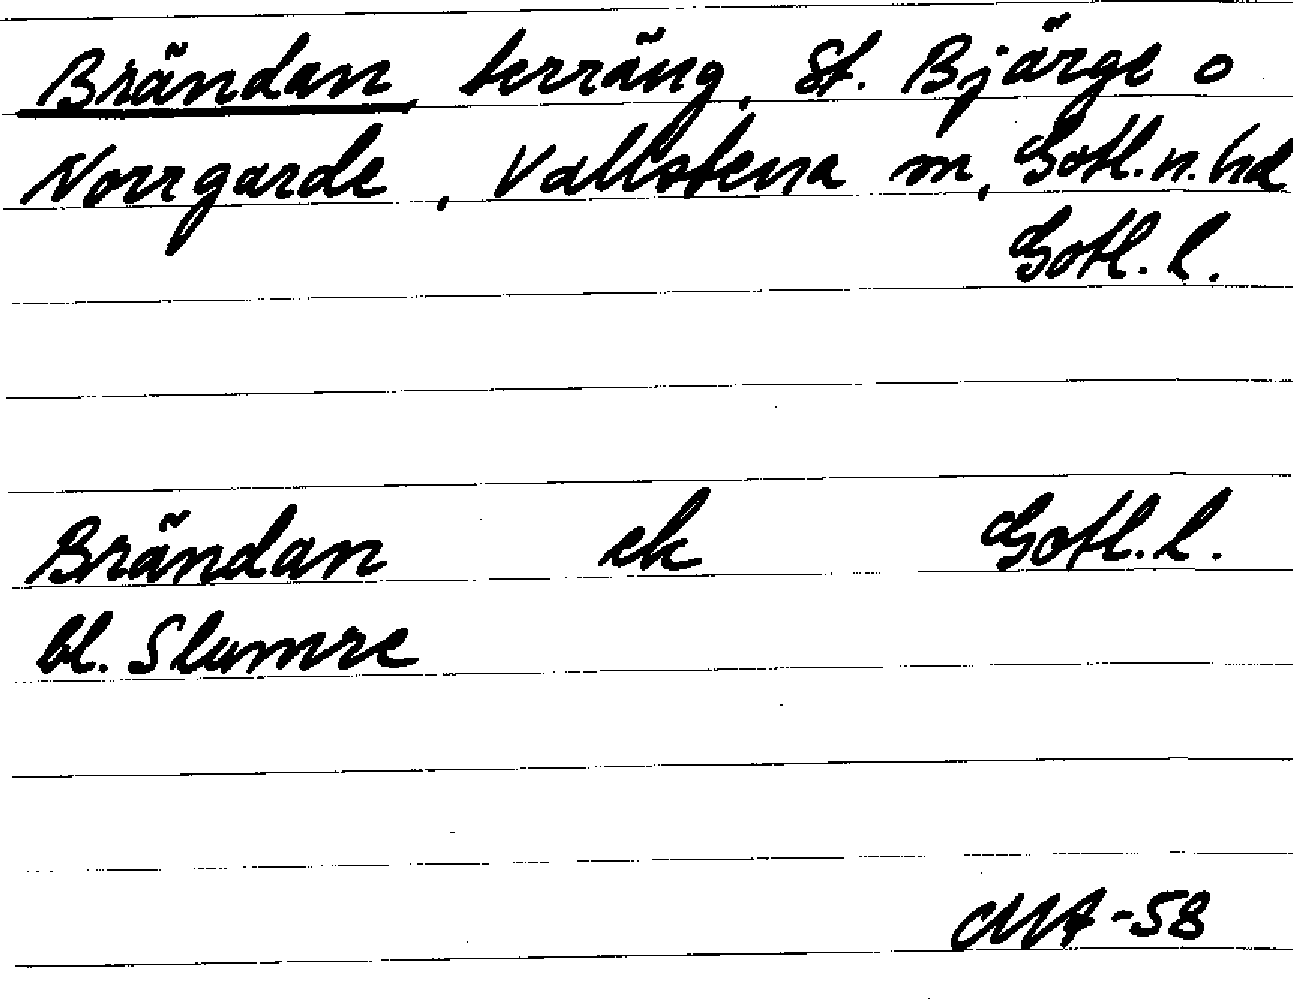 Brändan, terräng, St. Bjärge o
Norrgarde, Vallstena sn, Gotl. n. hd
Gotl. l.
Brändan ek Gotl. l.
bl. Slumre
MA-58